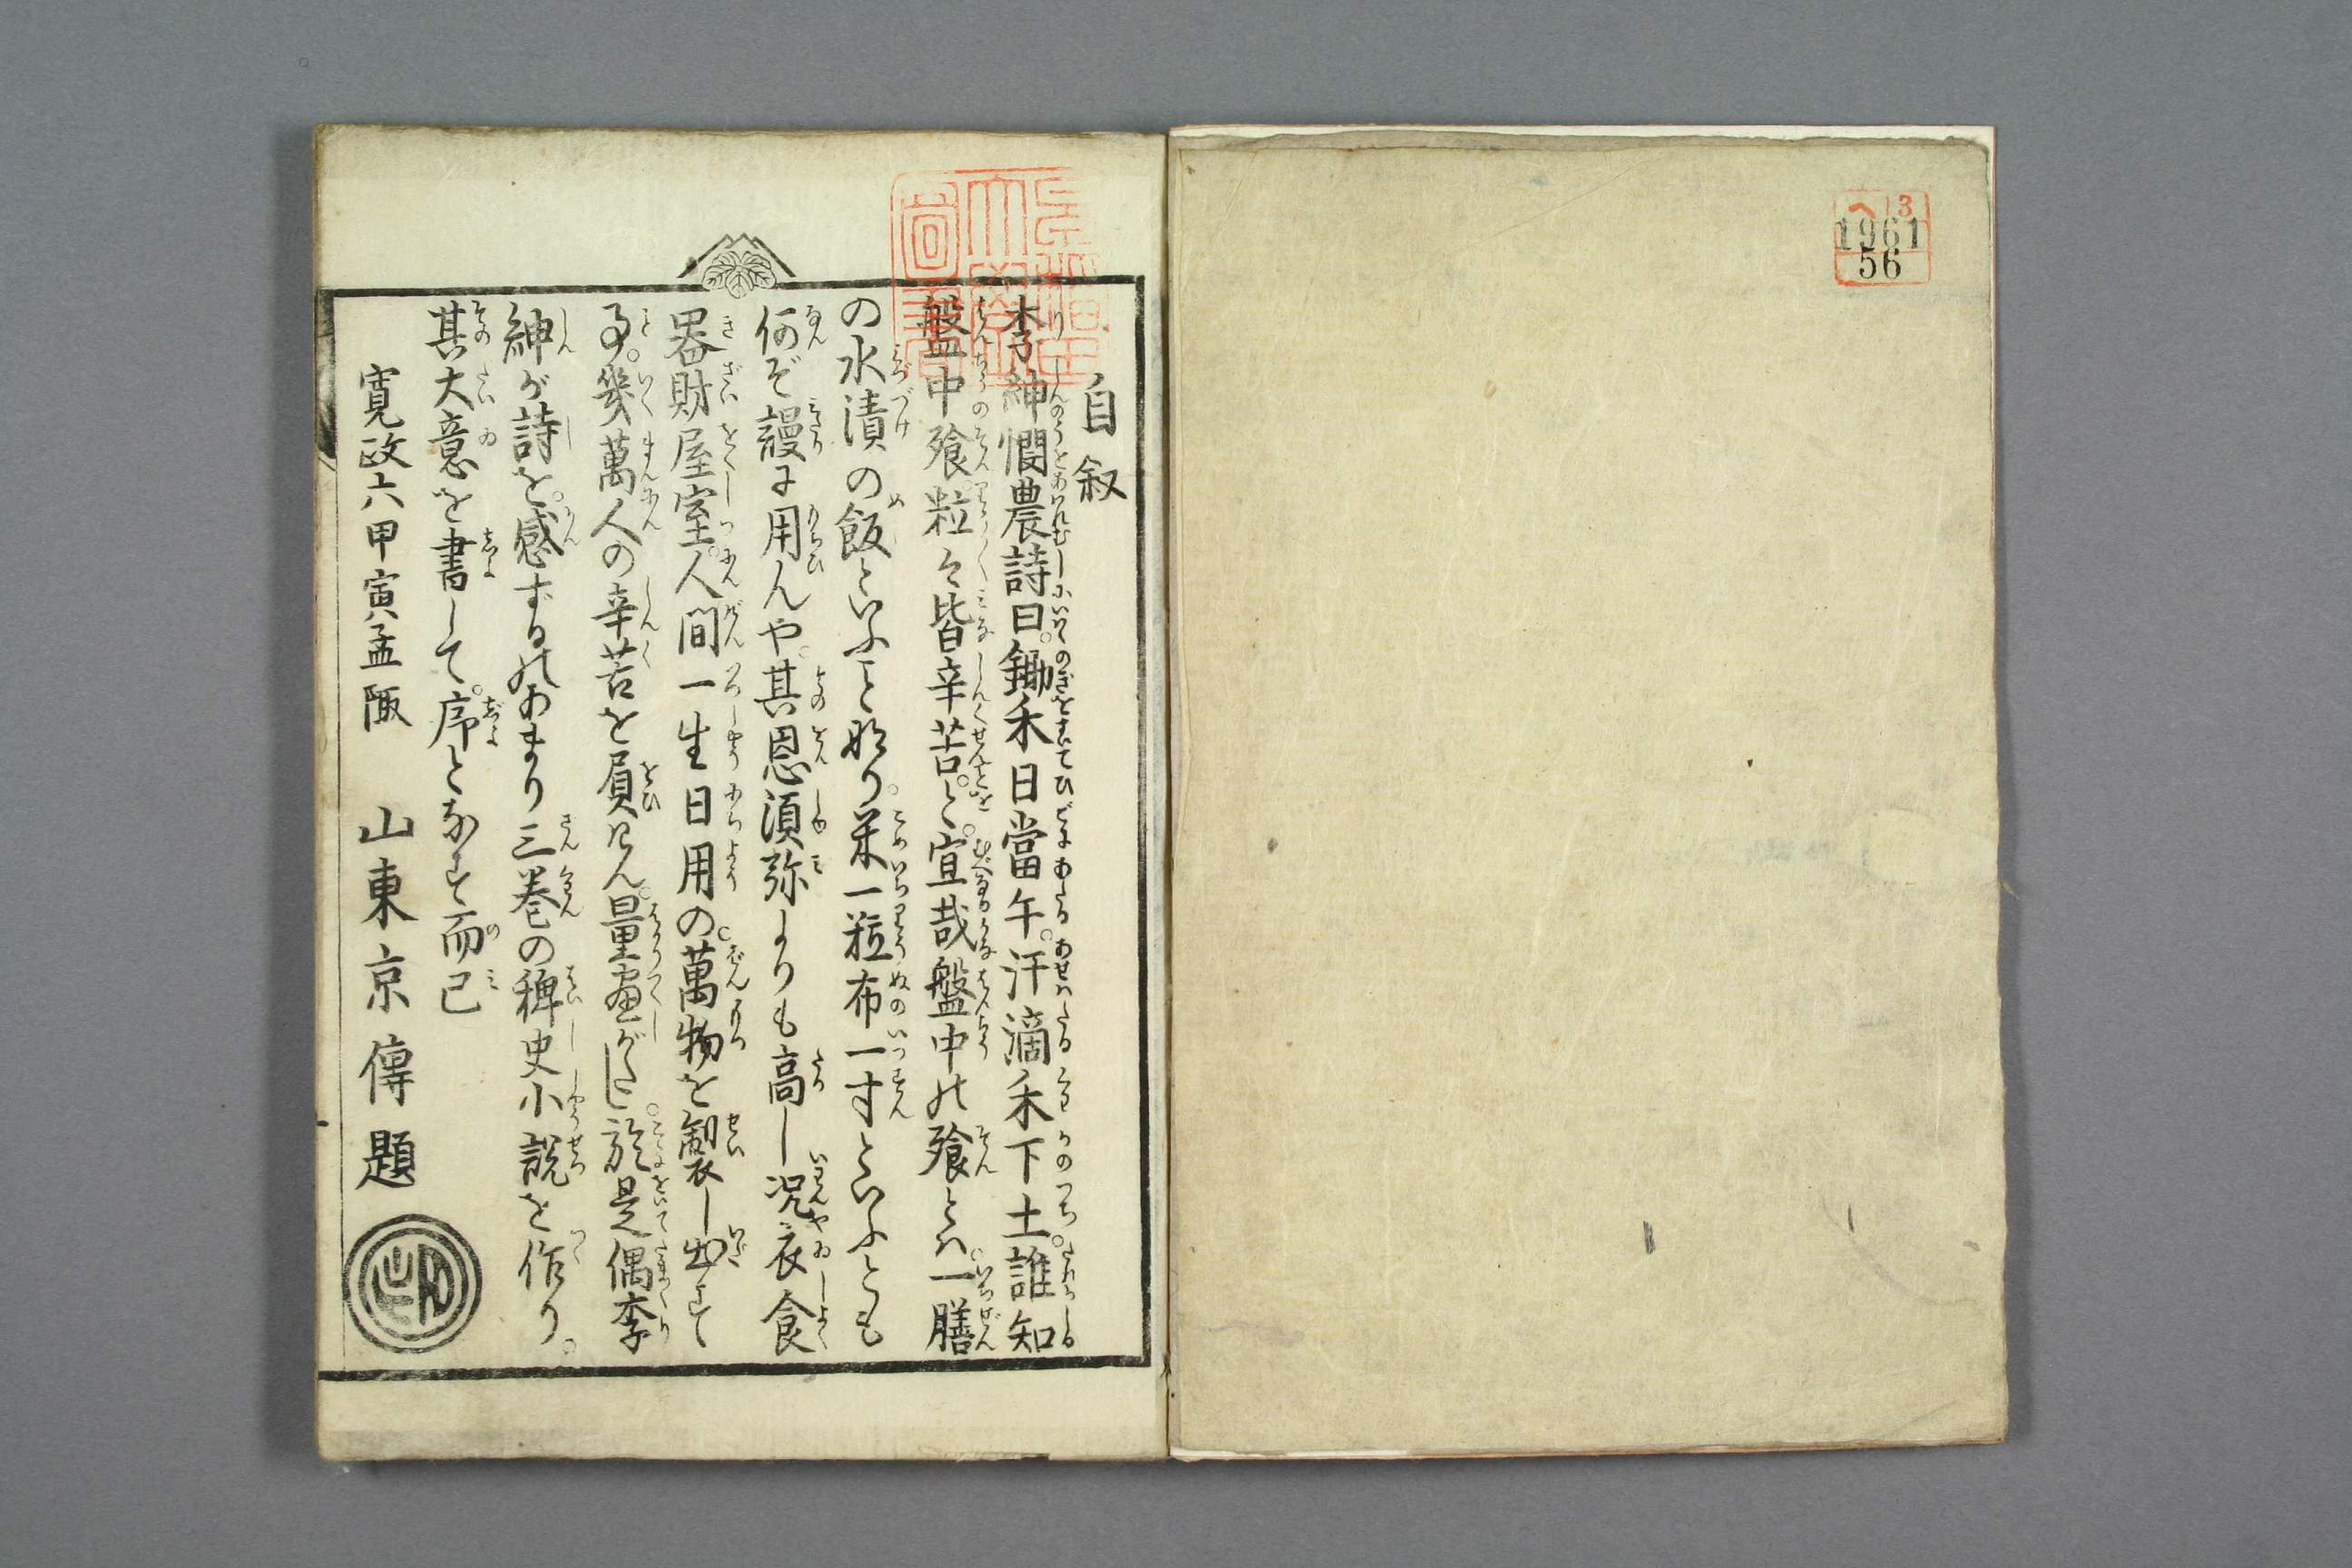 ヘ 3
1961
56
自叙
李紳憫農詩曰。鋤禾日當午。汗滴禾下土。誰知
盤中飱。粒々皆辛苦。と。宜哉盤中の飱とハ。一膳
の水漬の飯といふこと也り。米一粒布一寸といふとも
何ぞ謾に用んや。其恩須弥よりも高し况衣食
器財屋室。人間一生日用の萬物を製し出すこ
と。幾萬人の辛苦を屓けん。量盡がたし。於是偶李
紳が詩を感ずるのあまり三巻の稗史小説を作り。
其大意を書して。序となす而已
寛政六甲寅孟陬 山東京傳題